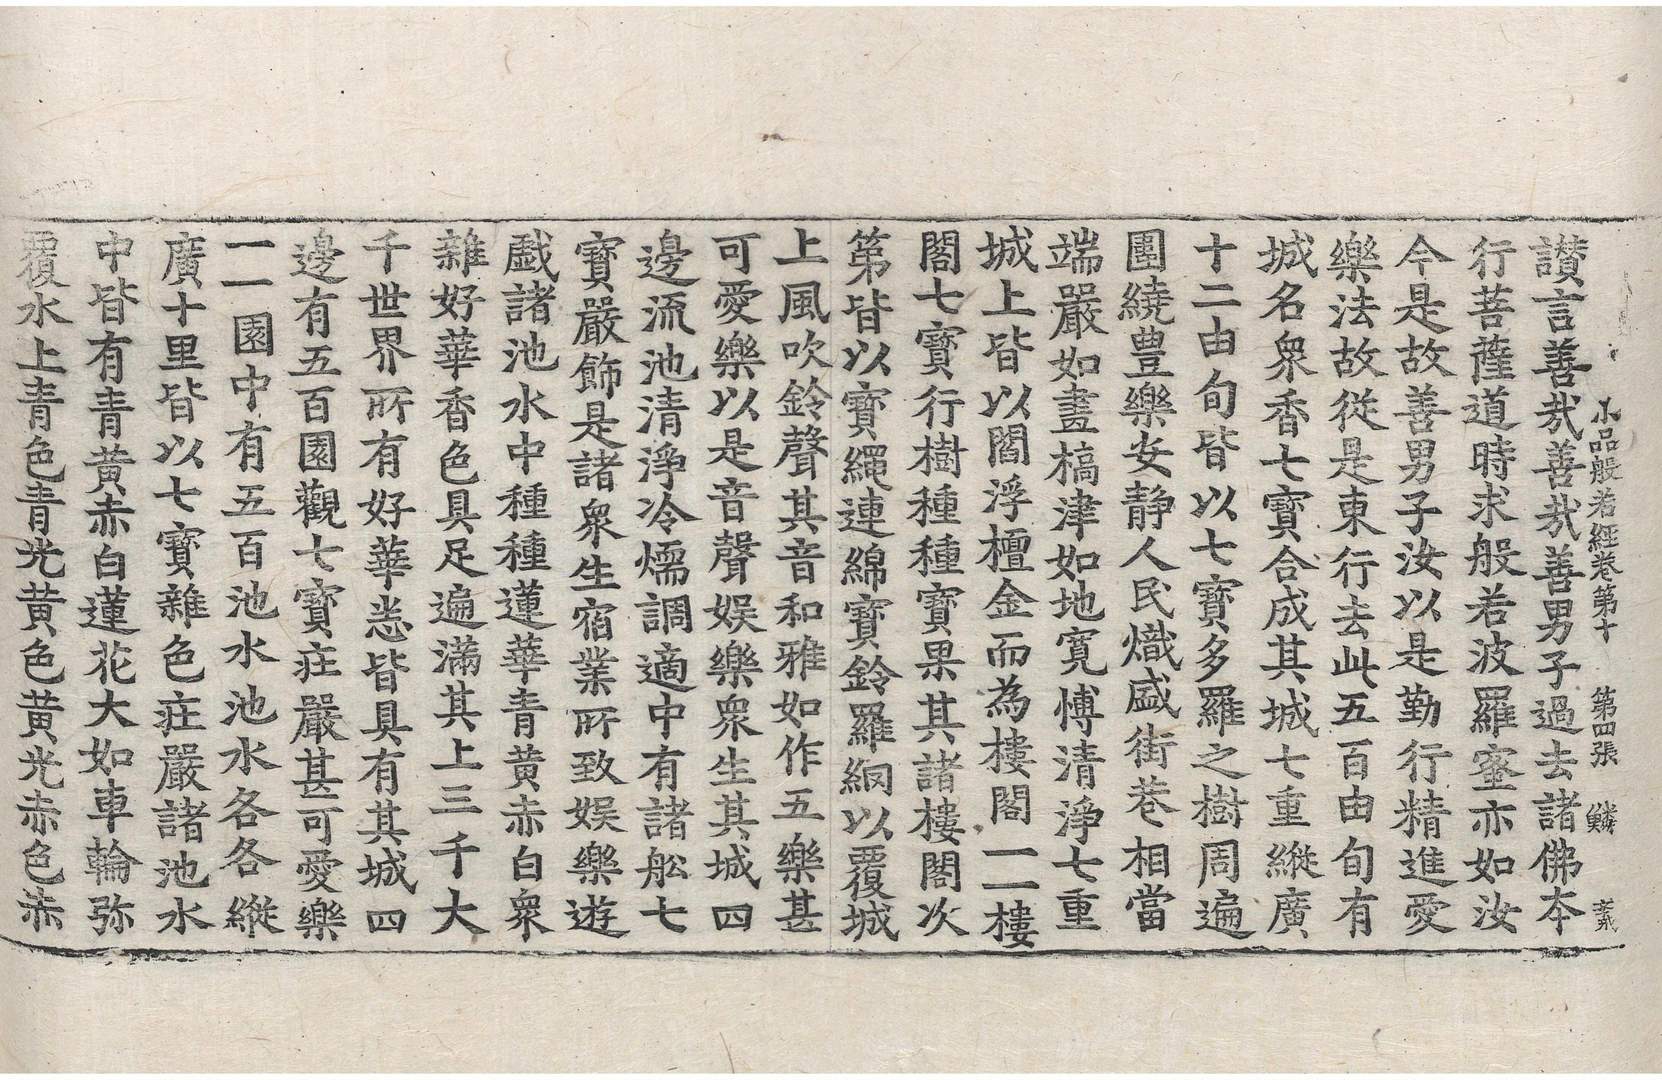 小品般若經卷第十 第四張 鱗
讃言善哉善哉善男子過去諸佛本
行菩薩道時求般若波羅蜜亦如汝
今是故善男子汝以是勤行精進愛
樂法故從是東行去此五百由旬有
城名衆香七寶合成其城七重縱廣
十二由旬皆以七寶多羅之樹周遍
圍繞豊樂安静人民熾盛街巷相當
端嚴如畫槗津如地寛博清淨七重
城上皆以閻浮檀金而為樓閣一一樓
閣七寶行樹種種寶果其諸樓閣次
第皆以寶繩連綿寶鈴羅網以覆城
上風吹鈴聲其音和雅如作五樂甚
可愛樂以是音聲娱樂衆生其城四
邊流池清淨冷煗調適中有諸舩七
寶嚴飾是諸衆生宿業所致娱樂遊
戲諸池水中種種蓮華青黄赤白衆
雜好華香色具足遍滿其上三千大
千世界所有好華悉皆具有其城四
邊有五百園觀七寶莊嚴甚可愛樂
一一園中有五百池水池水各各縱
廣十里皆以七寶雜色莊嚴諸池水
中皆有青黄赤白蓮花大如車輪弥
覆水上青色青光黄色黄光赤色赤